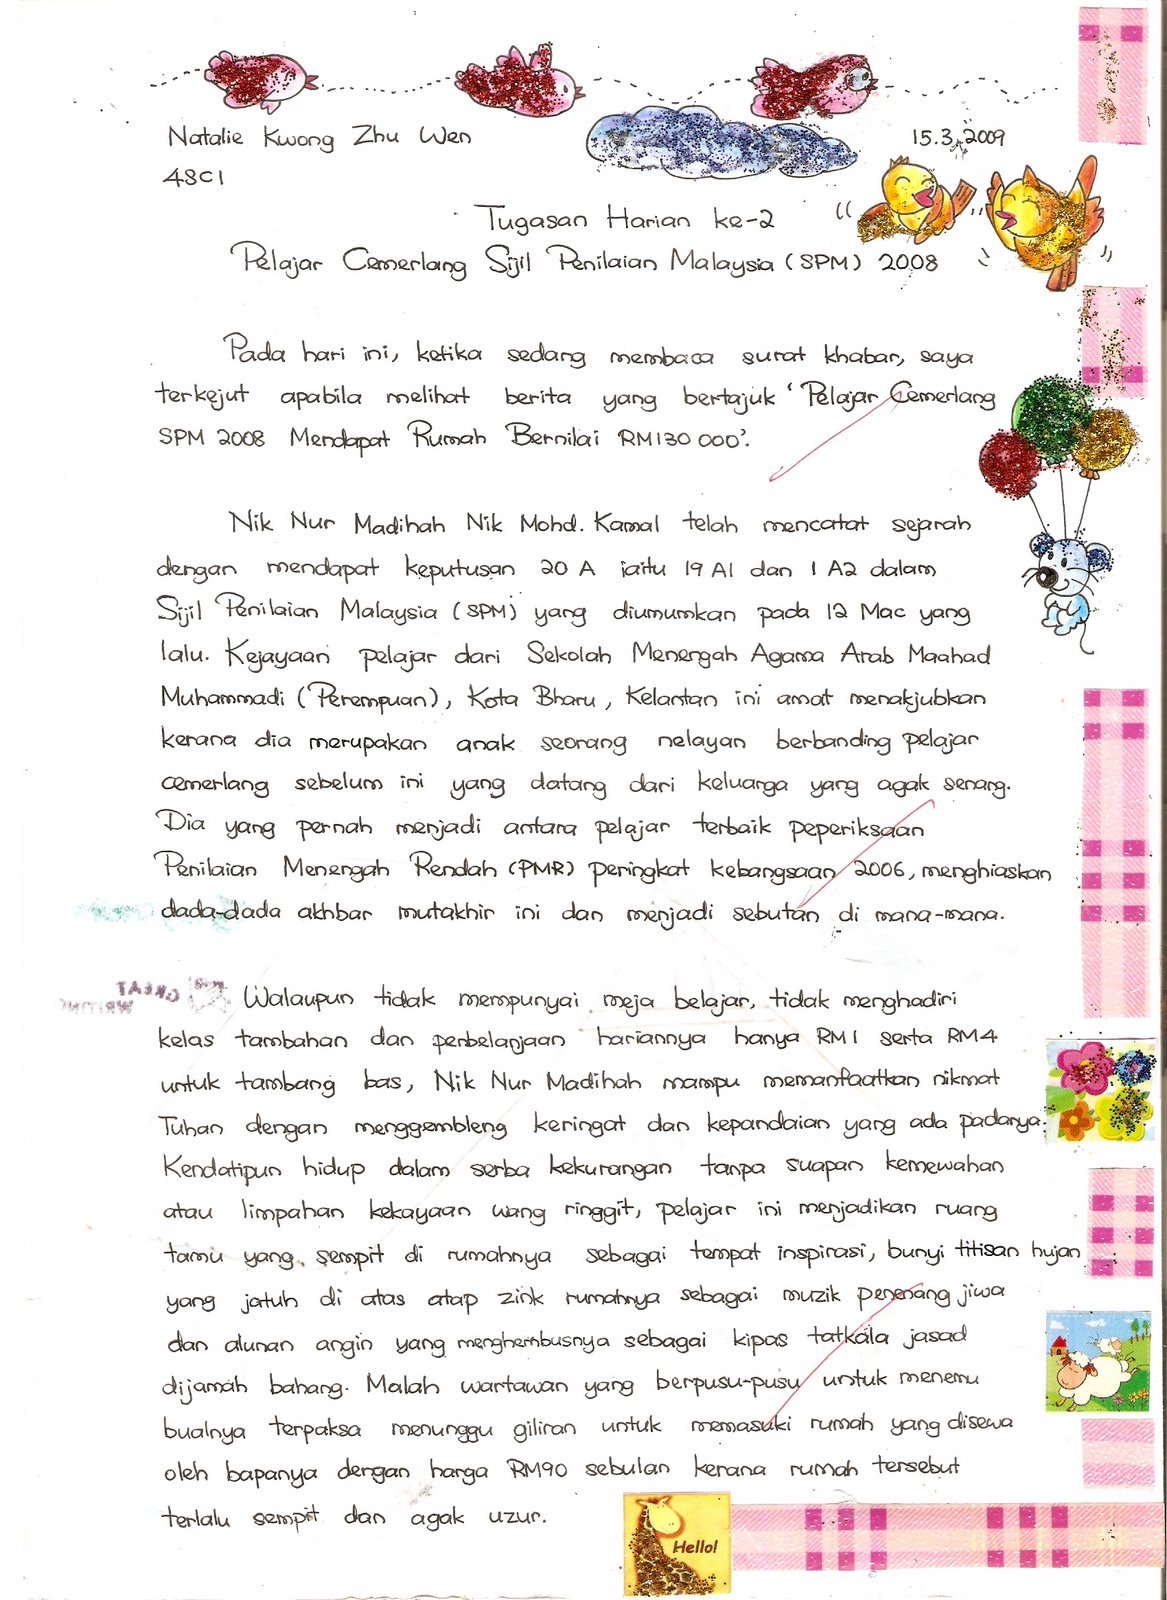 Natalie Kwong Zhu Wen
15.3.2009
4SC1
Tugasan Harian ke-2
Pelajar Cemerlang Sijil Penilaian Malaysia (SPM) 2008
Pada hari ini, ketika sedang membaca surat khabar, saya
terkejut apabila melihat berita yang bertajuk 'Pelajar Cemerlang
SPM 2008 Mendapat Rumah Bernilai RM130 000'.
Nik Nur Madihah Nik Mohd. Kamal telah mencatat sejarah
dengan mendapat keputusan 20 A iaitu 19 A1 dan 1 A2 dalam
Sijil Penilaian Malaysia (SPM) yang diumumkan pada 12 Mac yang
lalu. Kejayaan pelajar dari Sekolah Menengah Agama Arab Maahad
Muhammadi (Perempuan), Kota Bharu, Kelantan ini amat menakjubkan
kerana dia merupakan anak seorang nelayan berbanding pelajar
cemerlang sebelum ini yang datang dari keluarga yang agak senang.
Dia yang pernah menjadi antara pelajar terbaik peperiksaan
Penilaian Menengah Rendah (PMR) peringkat kebangsaan 2006, menghiaskan
dada-dada akhbar mutakhir ini dan menjadi sebutan di mana-mana.
GREAT
WRITING
Walaupun tidak mempunyai meja belajar, tidak menghadiri
kelas tambahan dan perbelanjaan hariannya hanya RM1 serta RM4
untuk tambang bas, Nik Nur Madihah mampu memanfaatkan nikmat
Tuhan dengan menggembleng keringat dan kepandaian yang ada padanya.
Kendatipun hidup dalam serba kekurangan tanpa suapan kemewahan
atau limpahan kekayaan wang ringgit, pelajar ini menjadikan ruang
tamu yang sempit di rumahnya sebagai tempat inspirasi, bunyi titisan hujan
yang jatuh di atas atap zink rumahnya sebagai muzik penenang jiwa
dan alunan angin yang menghembusnya sebagai kipas tatkala jasad
dijamah bahang. Malah wartawan yang berpusu-pusu untuk menemu
bualnya terpaksa menunggu giliran untuk memasuki rumah yang disewa
oleh bapanya dengan harga RM90 sebulan kerana rumah tersebut
terlalu sempit dan agak uzur.
Hello!